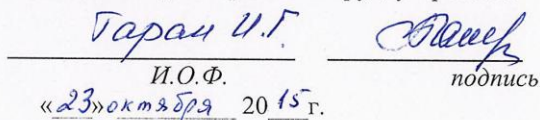 Таран И.Г.
И.О.Ф. подпись
«23» октября 2015 г.